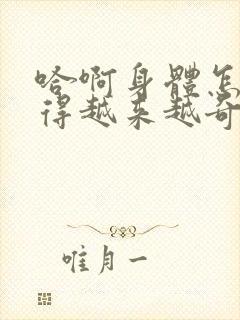 哈啊身體怎
得越来越奇
唯月一